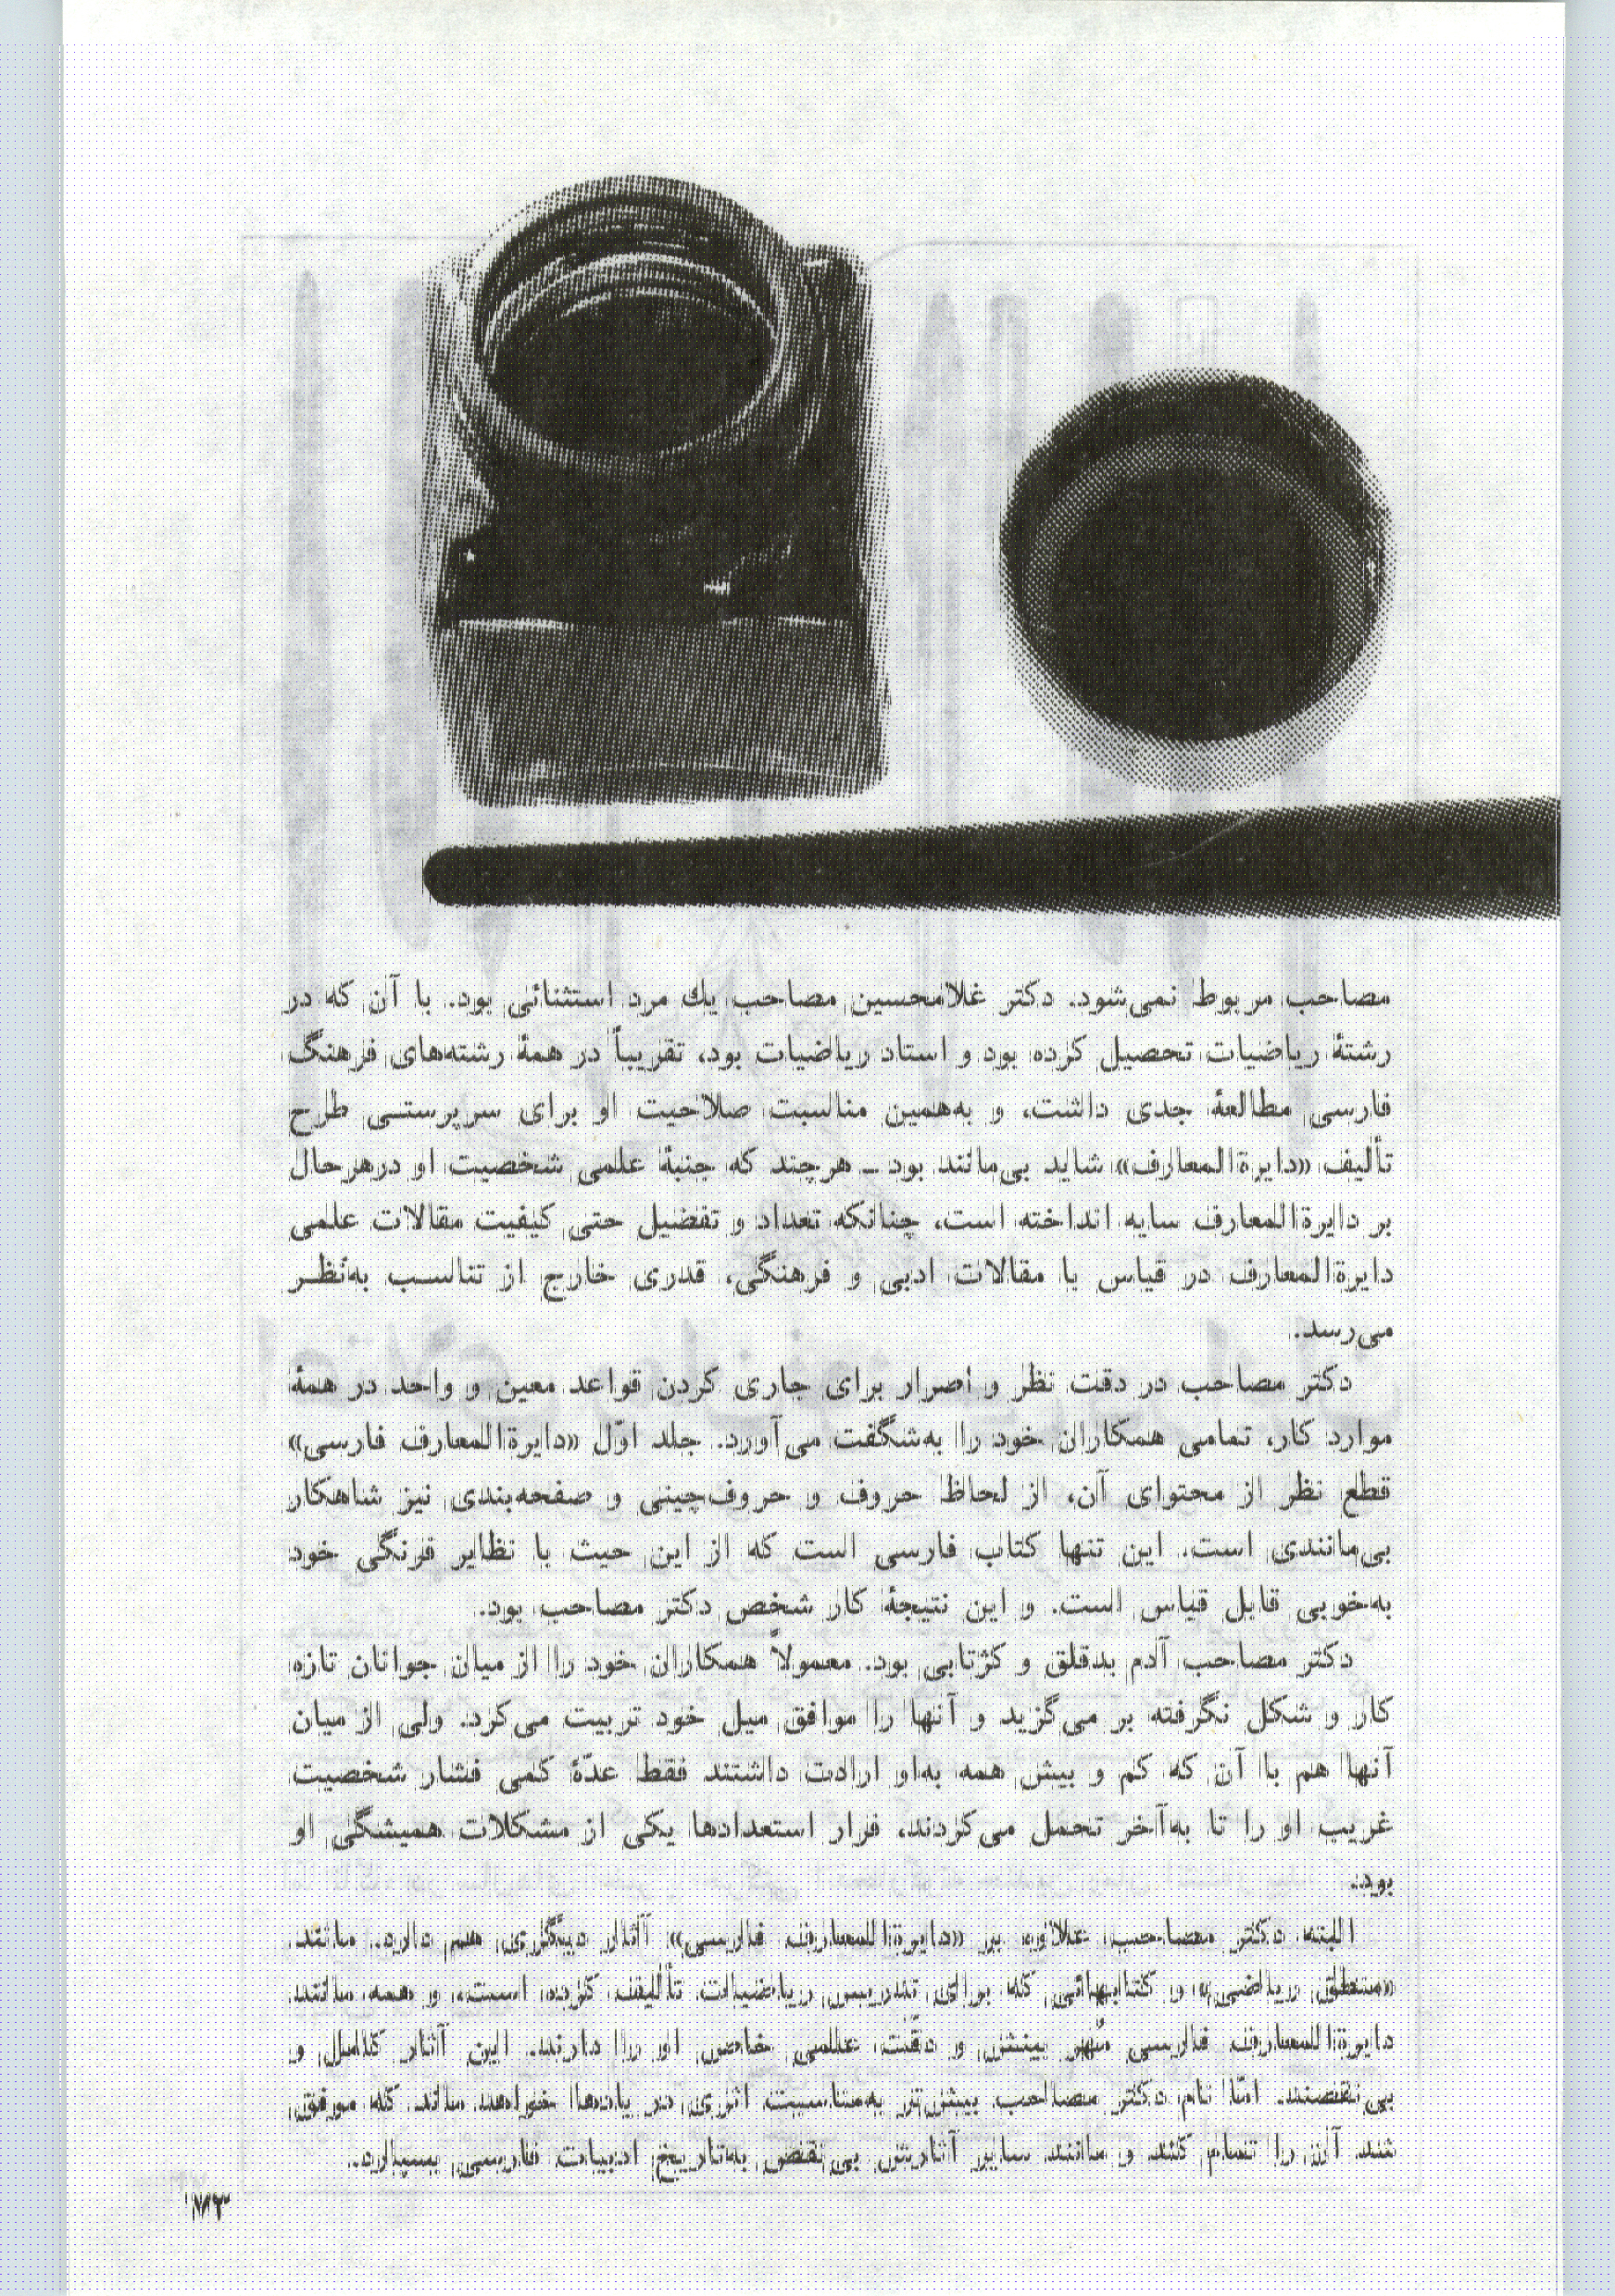 مصاحب مربوط نمی‌شود. دکتر غلامحسین مصاحب یك مرد استثنائی بود. با آن که در
رشتهٔ ریاضیات تحصیل کرده بود و استاد ریاضیات بود، تقریباً در همهٔ رشته‌های فرهنگ
فارسی مطالعهٔ جدی داشت، و به‌همین مناسبت صلاحیت او برای سرپرستی طرح
تألیف «دایرةالمعارف» شاید بی‌مانند بود ـ هرچند که جنبهٔ علمی شخصیت او درهرحال
بر دایرةالمعارف سایه انداخته است، چنانکه تعداد و تفصیل حتی کیفیت مقالات علمی
دایرةالمعارف در قیاس با مقالات ادبی و فرهنگی، قدری خارج از تناسب به‌نظر
می‌رسد.
دکتر مصاحب در دقت نظر و اصرار برای جاری کردن قواعد معین و واحد در همهٔ
موارد کار، تمامی همکاران خود را به‌شگفت می‌آورد. جلد اوّل «دایرةالمعارف فارسی»
قطع نظر از محتوای آن، از لحاظ حروف و حروف‌چینی و صفحه‌بندی نیز شاهکار
بی‌مانندی است. این تنها کتاب فارسی است که از این حیث با نظایر فرنگی خود
به‌خوبی قابل قیاس است. و این نتیجهٔ کار شخص دکتر مصاحب بود.
دکتر مصاحب آدم بدقلق و کژتابی بود. معمولاً همکاران خود را از میان جوانان تازه
کار و شکل نگرفته بر می‌گزید و آنها را موافق میل خود تربیت می‌کرد. ولی از میان
آنها هم با آن که کم و بیش همه به‌او ارادت داشتند فقط عدّهٔ کمی فشار شخصیت
غریب او را تا به‌آخر تحمل می‌کردند، فرار استعدادها یکی از مشکلات همیشگی او
بود.
البته دکتر مصاحب علاوه بر «دایرةالمعارف فارسی» آثار دیگری هم دارد. مانند
«منطق ریاضی» و کتابهائی که برای تدریس ریاضیات تألیف کرده است، و همه مانند
دایرةالمعارف فارسی مُهر بینش و دقّت علمی خاص او را دارند. این آثار کامل و
بی‌نقصند. امّا نام دکتر مصاحب بیش‌تر به‌مناسبت اثری در یادها خواهد ماند که موفق
نشد آن را تمام کند و مانند سایر آثارش بی‌نقص به‌تاریخ ادبیات فارسی بسپارد.
۱۸۳